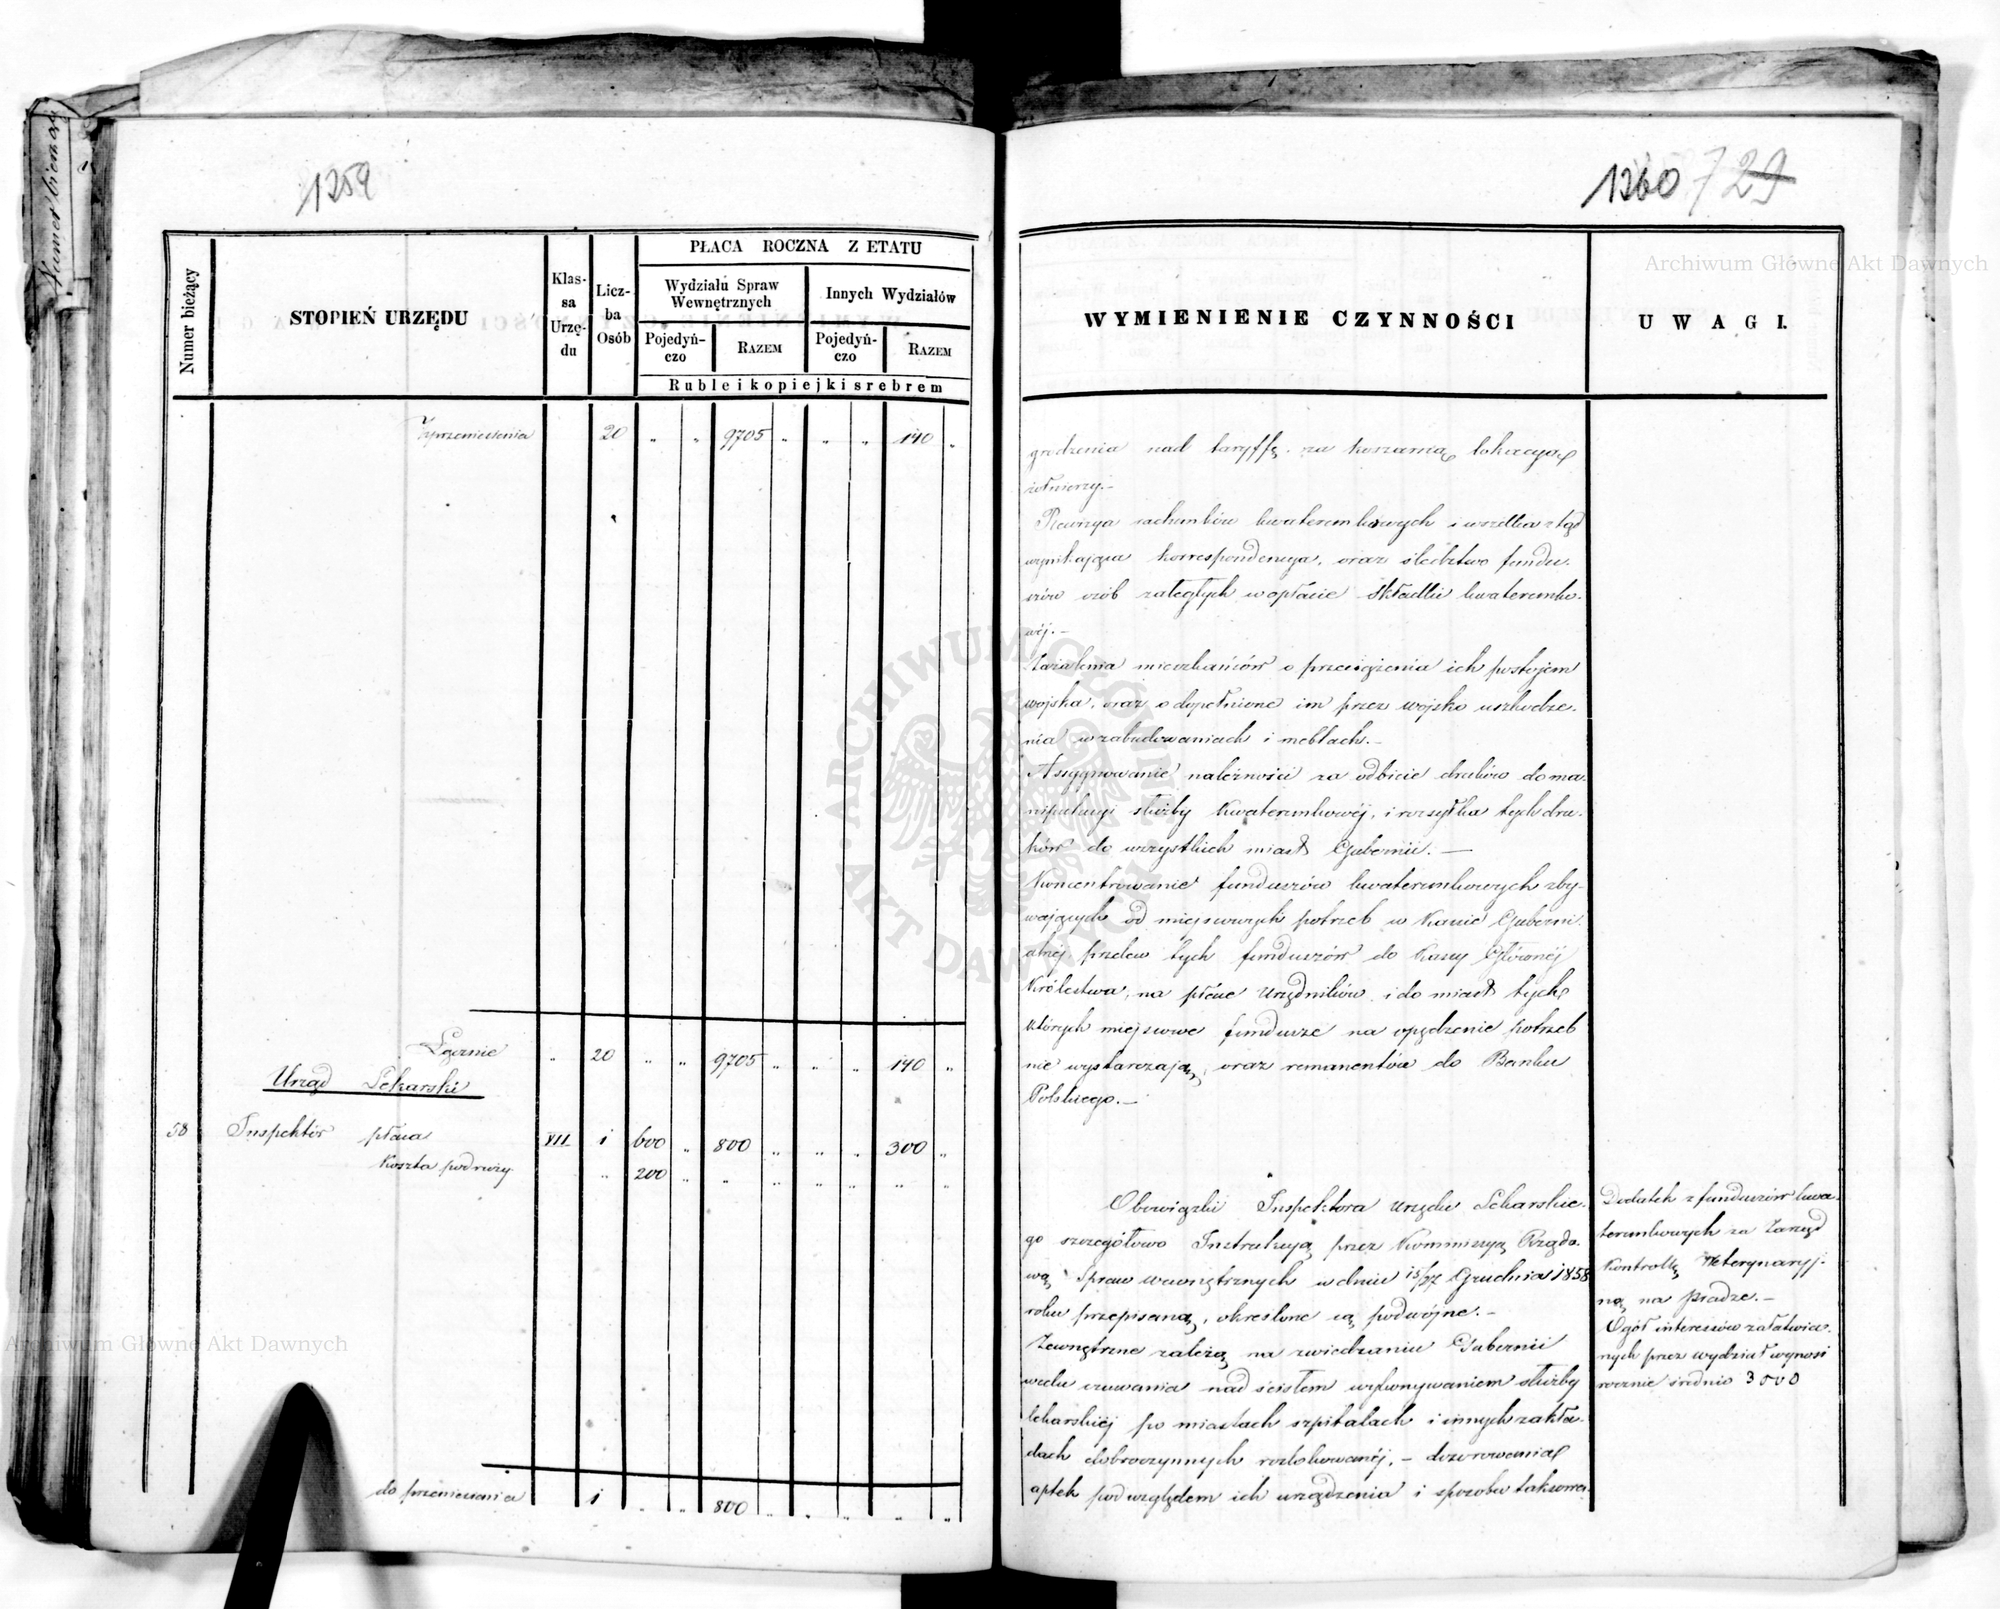 Numer bieżący
1259
Numer bieżący
STOPIEŃ URZĘDU
Klas-
sa
Urzę-
du
Licz-
ba
Osób
PŁACA ROCZNA Z ETATU
Wydziału Spraw
Wewnętrznych
Innych Wydziałów
Pojedyń-
czo
RAZEM
Pojedyń-
czo
RAZEM
Ruble i kopiejki srebrem
Z przeniesienia 20 " " 9705 " " " 140 "
Łącznie " 20 " " 9705 " " " 140 "
Urząd Lekarski
58 Inspektór płaca VII 1 600 " 800 " " " 300 "
Koszta podróży " 200 " " " " " " "
do przeniesienia 1 " " 800 " " " " "
1260 729
WYMIENIENIE CZYNNOŚCI
UWAGI.
grodzenia nad taryffę za koszarną lokacyą
żołnierzy.–
Rewizya rachunków kwaterunkowych i wszelka ztąd
wynikająca korrespondencya, oraz śledztwo fundu-
szów osób zaległych w opłacie składki kwaterunko-
wéj.–
Zażalenia mieszkańców o przeciążenia ich postojem
wojska, oraz o dopełnione im przez wojsko uszkodze-
nia w zabudowaniach i meblach.–
Assygnowanie należności za odbicie druków do ma-
nipulacyi służby Kwaterunkowéj, i rozsyłka tych dru-
ków do wszystkich miast Gubernii.–
Koncentrowanie funduszów kwaterunkowych zby-
wających od miejscowych potrzeb w Kassie Guberni-
alnéj, przelew tych funduszów do Kassy Głównéj
Królestwa, na płace Urzędników i do miast tych
których miejscowe fundusze na opędzenie potrzeb
nie wystarczają, oraz remanentów do Banku
Polskiego.–
Obowiązki Inspektora Urzędu Lekarskie-
go szczegółowo Instrukcyą przez Kommissyą Rządo-
wą Spraw wewnętrznych w dniu 15/27 Grudnia 1858
roku przepisaną, określone są podwójne.–
Zewnętrzne zależą na zwiedzaniu Gubernii
w celu czuwania nad ścisłem wykonywaniem służby
lekarskiéj po miastach szpitalach i innych zakła-
dach dobroczynnych rozlokowanéj,– dozorowania
aptek pod względem ich urządzenia i sposobu taksowa-
Dodatek z funduszów kwa-
terunkowych za Zarząd
Kontrollę Weterynaryj-
ną na Pradze.–
Ogół interessów załatwia-
nych przez wydział wynosi
rocznie średnio 3000
ARCHIWUM GŁÓWNE AKT DAWNYCH
Archiwum Główne Akt Dawnych
Archiwum Główne Akt Dawnych